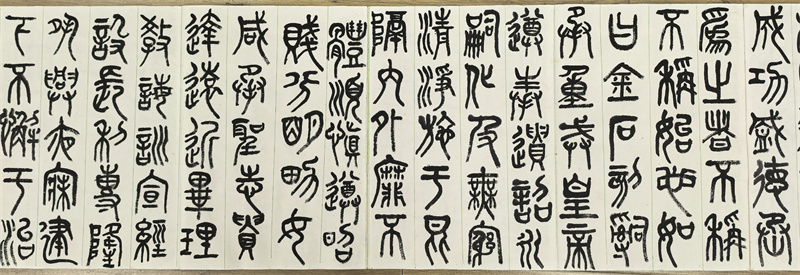 下不懈于治
夙興夜寐建
設長利專隆
教誨訓宣經
達遠近畢理
咸承聖志貴
賤分明男女
體順慎遵昭
隔內外靡不
清淨施于昆
嗣化及無窮
遵奉遺詔永
承重戒皇帝
曰金石刻辭
不稱始也如
爲之者不稱
成功盛德丞